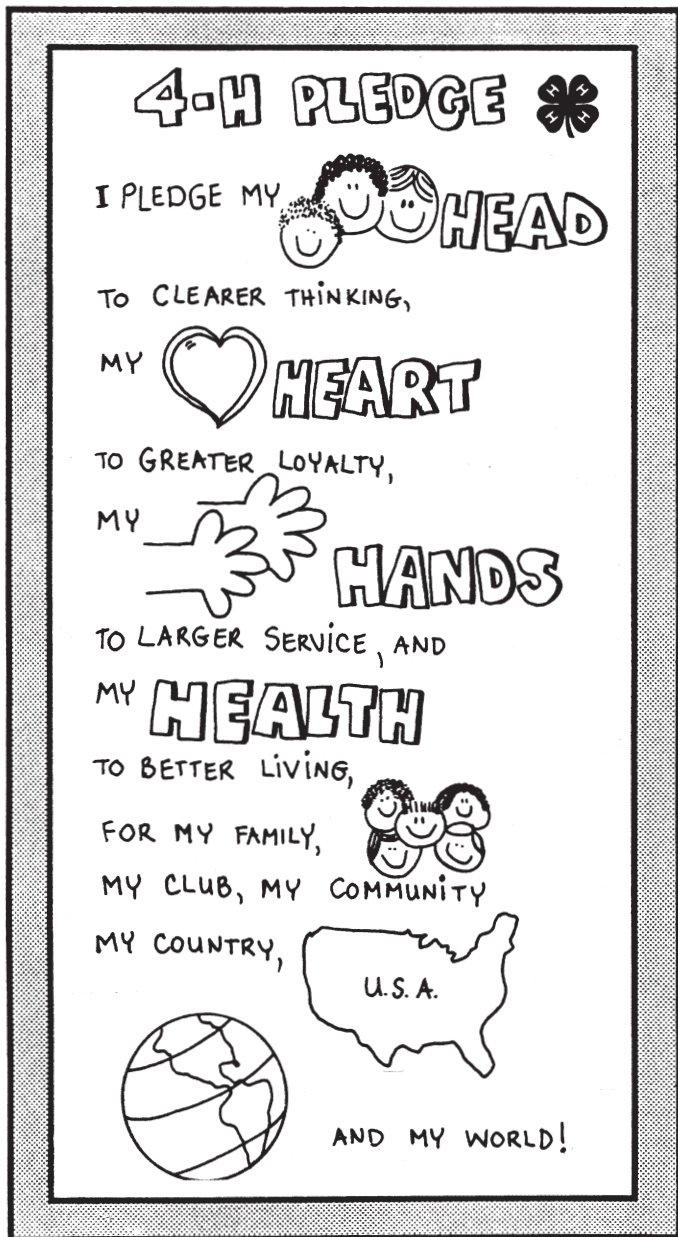 4-H PLEDGE
H H H H
I PLEDGE MY HEAD
TO CLEARER THINKING,
MY HEART
TO GREATER LOYALTY,
MY HANDS
TO LARGER SERVICE, AND
MY HEALTH
TO BETTER LIVING,
FOR MY FAMILY,
MY CLUB, MY COMMUNITY
MY COUNTRY,
U.S.A.
AND MY WORLD!